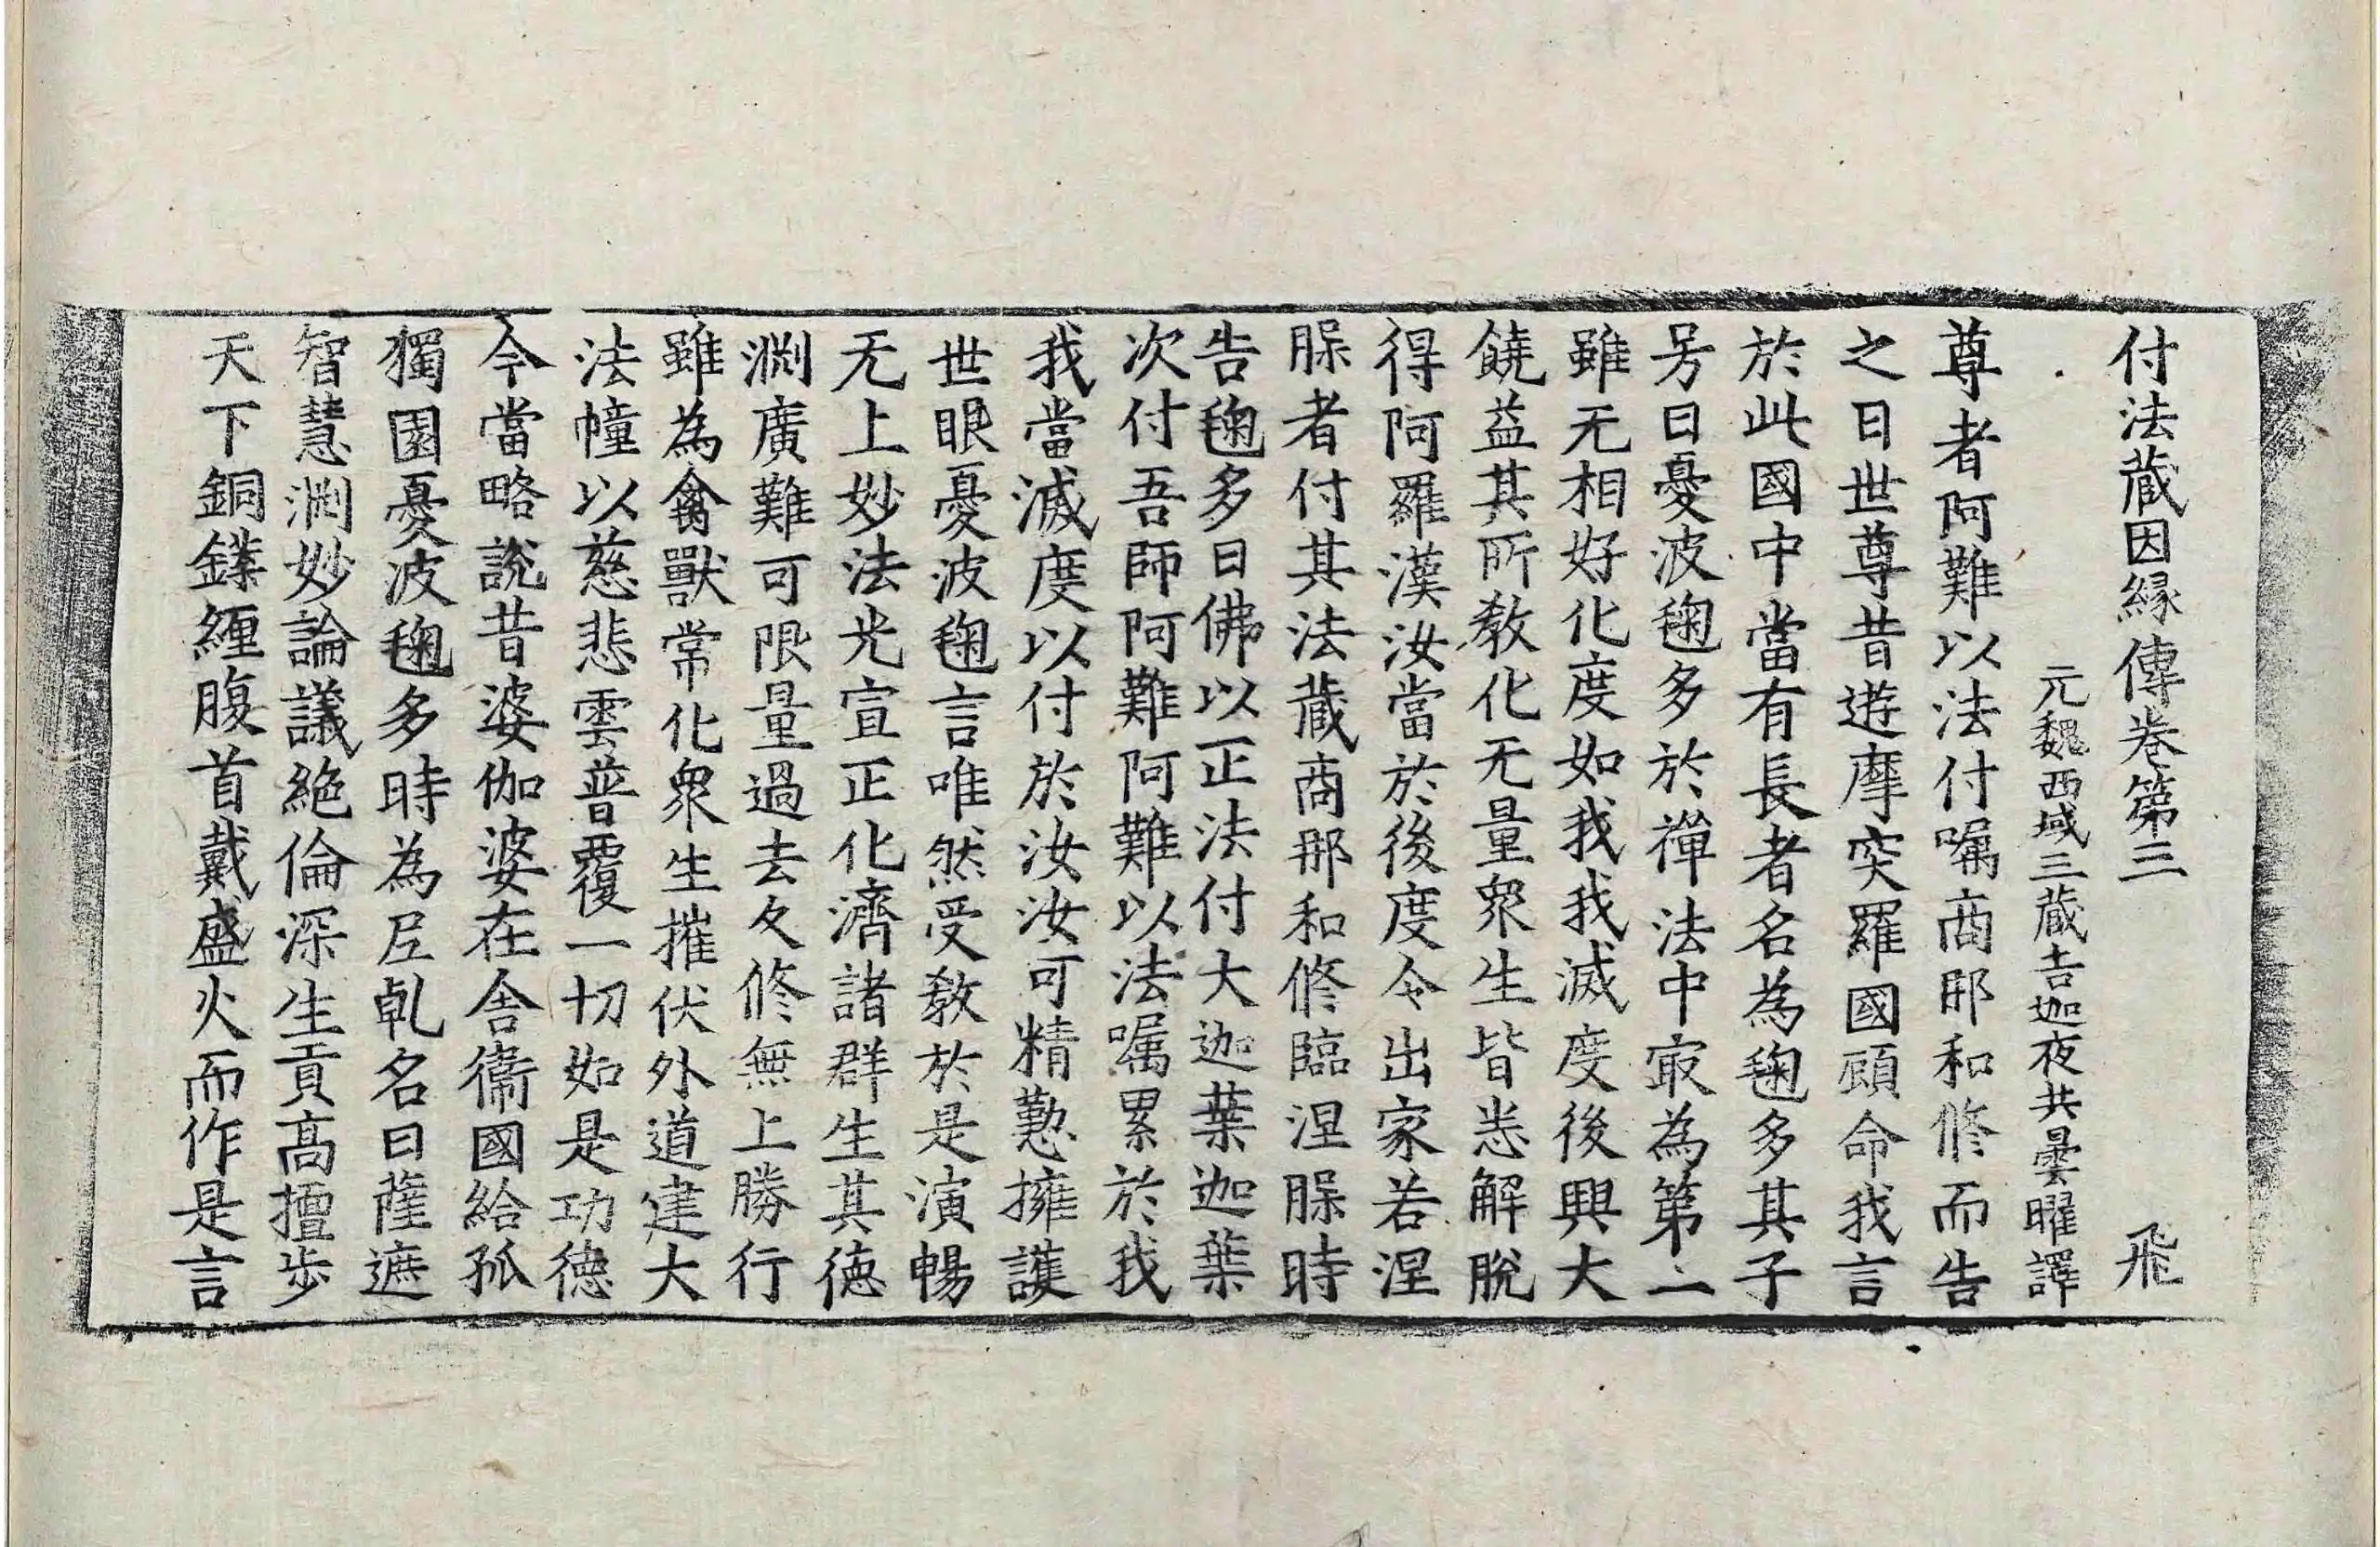 付法藏因緣傳卷第三 飛
元魏西域三藏吉迦夜共曇曜譯
尊者阿難以法付囑商那和修而告
之曰世尊昔遊摩突羅國顧命我言
於此國中當有長者名為毱多其子
号曰憂波毱多於禪法中㝡為第一
雖无相好化度如我我滅度後興大
饒益其所教化无量衆生皆悉解脫
得阿羅漢汝當於後度令出家若涅
槃者付其法藏商那和修臨涅槃時
告毱多曰佛以正法付大迦葉迦葉
次付吾師阿難阿難以法囑累於我
我當滅度以付於汝汝可精懃擁護
世眼憂波毱言唯然受教於是演暢
无上妙法光宣正化濟諸群生其德
渊廣難可限量過去久修無上勝行
雖為禽獸常化衆生摧伏外道建大
法幢以慈悲雲普覆一切如是功德
今當略說昔婆伽婆在舍衞國給孤
獨園憂波毱多時為尼乹名曰薩遮
智慧渊妙論議絶倫深生貢髙擅步
天下銅鍱纏腹首戴盛火而作是言